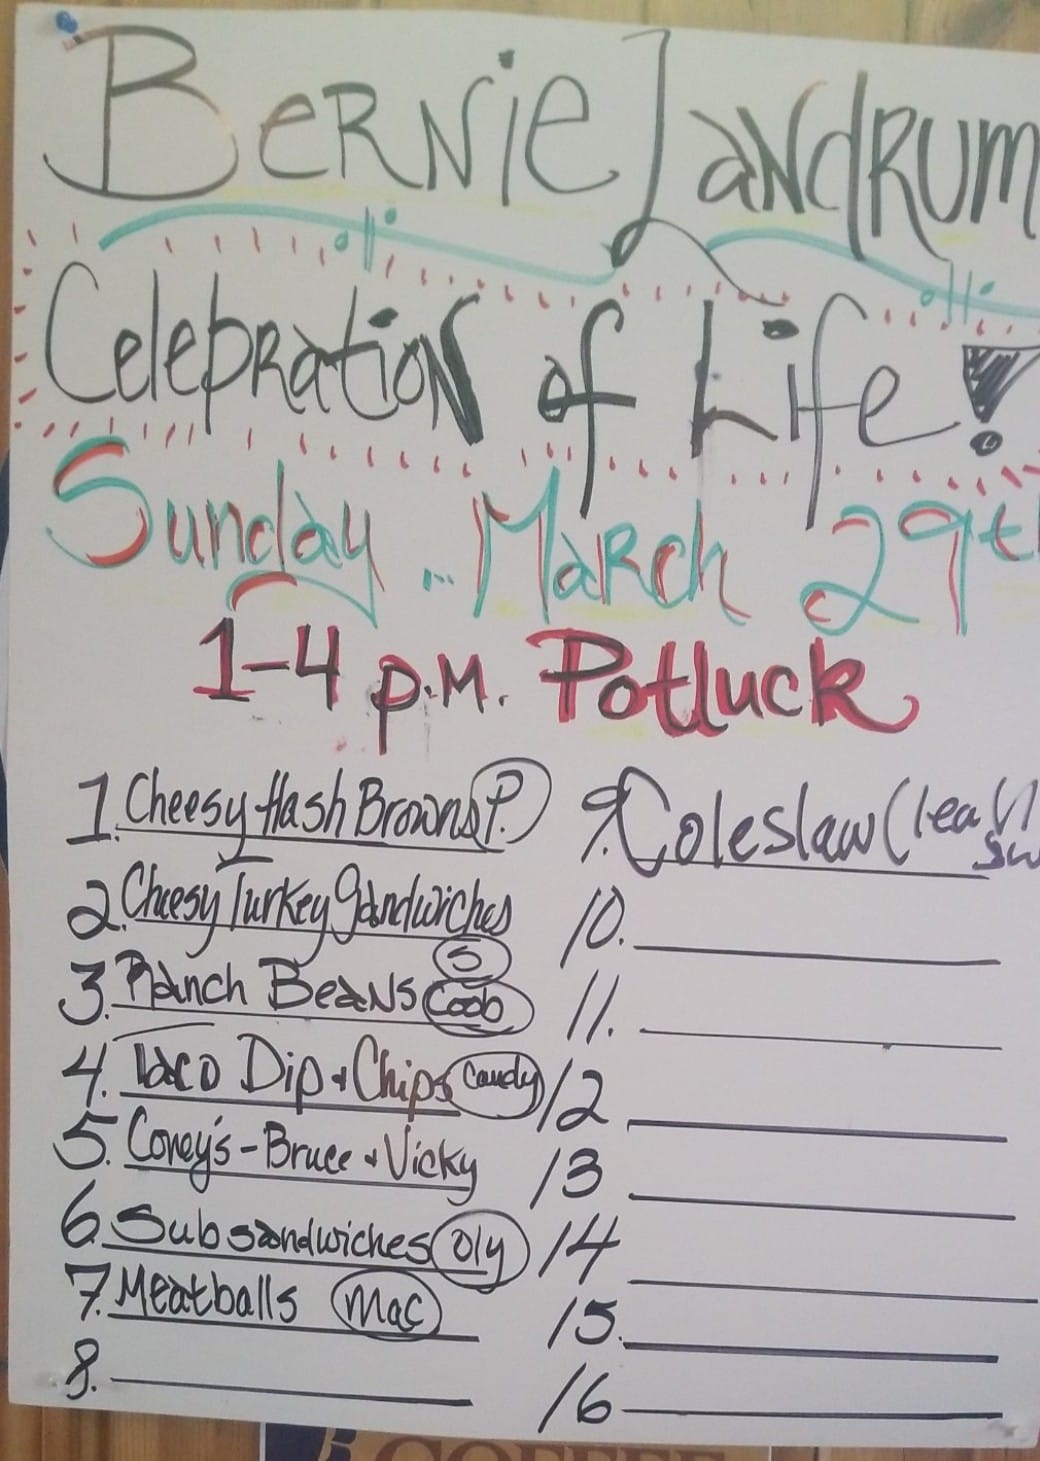 Bernie Landrum
Celebration of Life!
Sunday... March 29th
1-4 p.m. Potluck
1. Cheesy Hash Browns P.
2. Cheesy Turkey Sandwiches
S
3. Ranch Beans Coob
4. Taco Dip + Chips Candy
5. Coney's - Bruce + Vicky
6. Sub sandwiches Oly
7. Meatballs Mac
8.
9. Coleslaw (
10.
11.
12
13
14
15.
16
COFFEE